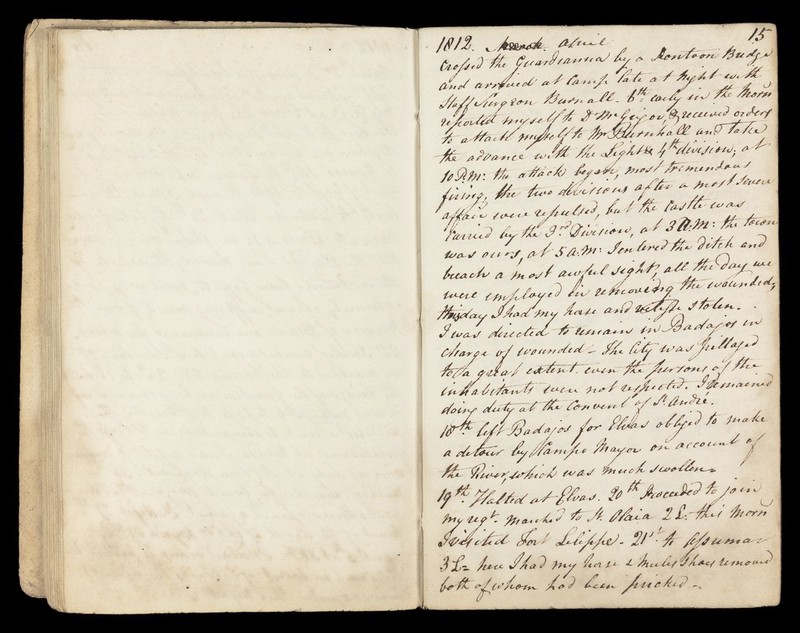 1812. March. April 15
Crossed the Guardianna by a Pontoon Bridge
and arrived at Camp late at Night with
Staff Surgeon Burnall. 6th early in the Morn
reported myself to Dr McGrigor, & received orders
to attach myself to Mr Burnhall and take
the advance with the Light & 4th division, at
10 P.M: the attack began, most tremendous
firing, the two divisions after a most severe
affair were repulsed, but the Castle was
Carried by the 3rd Division, at 3 A.M: the town
was ours, at 5 a.m: I entered the ditch and
breach a most awful sight, all the day we
were employed in removeing the wounded,
this day I had my horse and stolen.
I was directed to remain in Badajos in
charge of wounded - The City was pillaged
to a great extent. even the persons of the
inhabitants were not respected. I remained
doing duty at the Convent of St. Andre.
18th. left Badajos for Elvas obliged to make
a detour by Campo Mayor on account of
the River, which was much swollen =
19th. Halted at Elvas. 20th Proceeded to join
my regt. marched to St. Olaia 2 L: this Morn
I visited Fort Lelippe. - 21st to Assumar
3 L = here I had my horse & Mules Shoes removed
both of whom had been pricked -